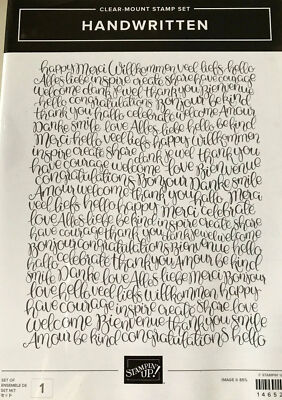 CLEAR-MOUNT STAMP SET
HANDWRITTEN
happy Merci Willkommen veel liefs hello
Alles liebe inspire create share have courage
welcome dank je wel thank you Bienvenue
hello congratulations Bonjour be kind
thank you hallo celebrate welcome Amour
Danke smile love Alles liebe hello be kind
Merci hello veel liefs happy Willkommen
inspire create share dank je wel thank you
have courage welcome love Bienvenue
congratulations be kind Bonjour Danke smile
Amour welcome thank you hallo Merci
veel liefs hello happy Merci celebrate
love Alles liebe be kind inspire create share
have courage thank you dank je wel welcome
Bonjour congratulations Bienvenue be kind
hallo celebrate thank you Amour be kind
smile Danke love Alles liebe Merci Bonjour
love hello veel liefs willkommen happy
have courage inspire create share love
welcome Bienvenue thank you smile
Amour be kind congratulations hello
SET OF
ENSEMBLE DE
SET MIT
1
STAMPIN' UP!
IMAGE © 85%
© STAMPIN' U
14652